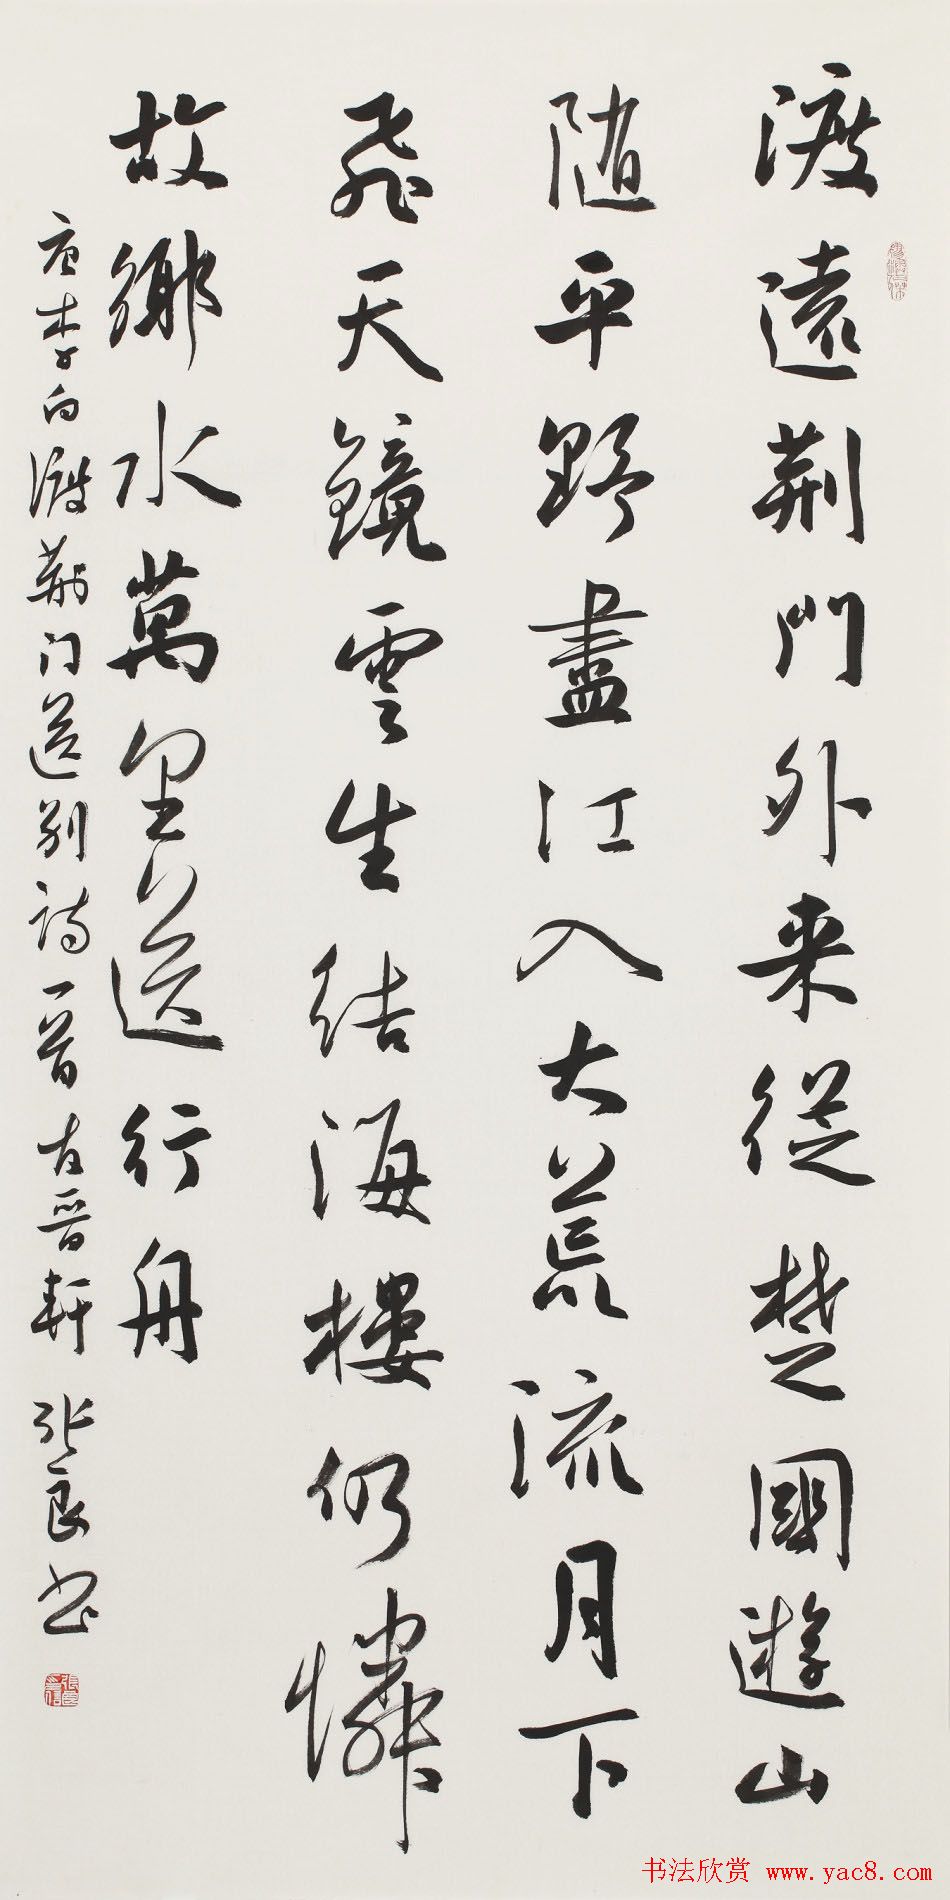 渡遠荊門外来從楚國遊山
随平野盡江入大荒流月下
飛天鏡雲生結海樓仍憐
故鄉水萬里送行舟
唐李白渡荆门送别诗一首 晋軒 张良书
书法欣赏 www.yac8.com